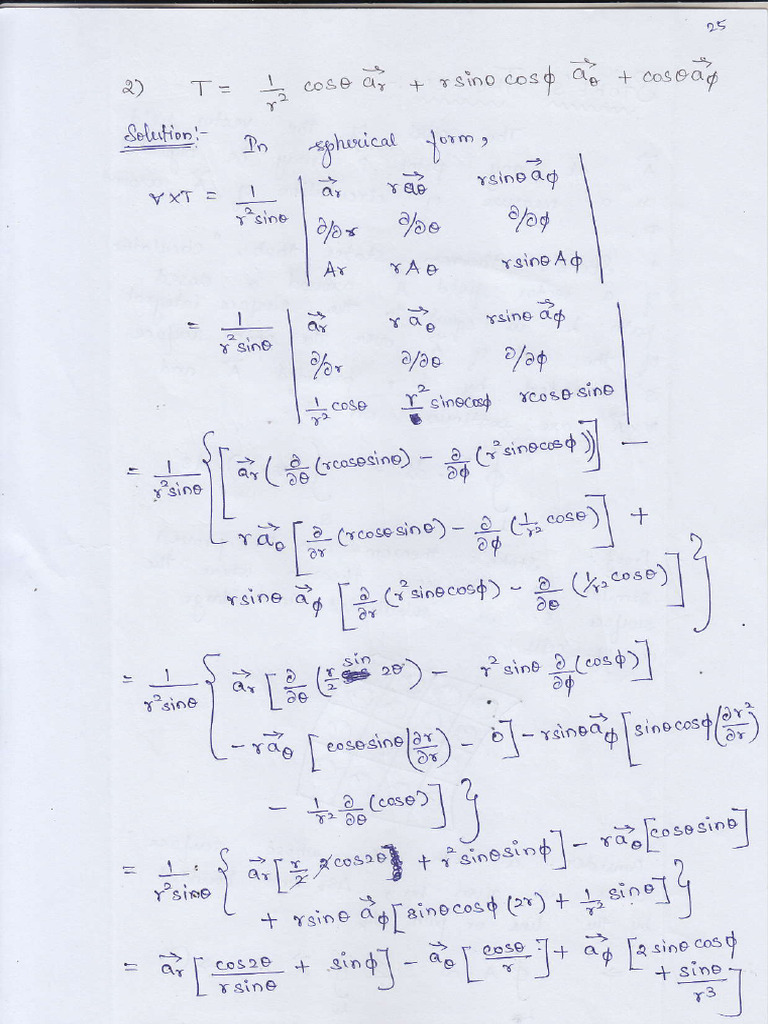 25
2) T = 1/r² cosθ a⃗r + r sinθ cosφ a⃗θ + cosθ a⃗φ
Solution:- In spherical form,
∇×T = 1/(r² sinθ) | a⃗r r a⃗θ r sinθ a⃗φ |
| ∂/∂r ∂/∂θ ∂/∂φ |
| Ar rAθ r sinθ Aφ |
= 1/(r² sinθ) | a⃗r r a⃗θ r sinθ a⃗φ |
| ∂/∂r ∂/∂θ ∂/∂φ |
| 1/r² cosθ r² sinθ cosφ r cosθ sinθ |
= 1/(r² sinθ) { [ a⃗r ( ∂/∂θ (r cosθ sinθ) − ∂/∂φ (r² sinθ cosφ) ) ] −
r a⃗θ [ ∂/∂r (r cosθ sinθ) − ∂/∂φ (1/r² cosθ) ] +
r sinθ a⃗φ [ ∂/∂r (r² sinθ cosφ) − ∂/∂θ (1/r² cosθ) ] }
= 1/(r² sinθ) { a⃗r [ ∂/∂θ (r/2 sin 2θ) − r² sinθ ∂/∂φ (cosφ) ]
− r a⃗θ [ cosθ sinθ (∂r/∂r) − 0 ] − r sinθ a⃗φ [ sinθ cosφ (∂r²/∂r)
− 1/r² ∂/∂θ (cosθ) ] }
= 1/(r² sinθ) { a⃗r [ r/2 2 cos2θ + r² sinθ sinφ ] − r a⃗θ [ cosθ sinθ ]
+ r sinθ a⃗φ [ sinθ cosφ (2r) + 1/r² sinθ ] }
= a⃗r [ cos2θ/(r sinθ) + sinφ ] − a⃗θ [ cosθ/r ] + a⃗φ [ 2 sinθ cosφ
+ sinθ/r³ ]